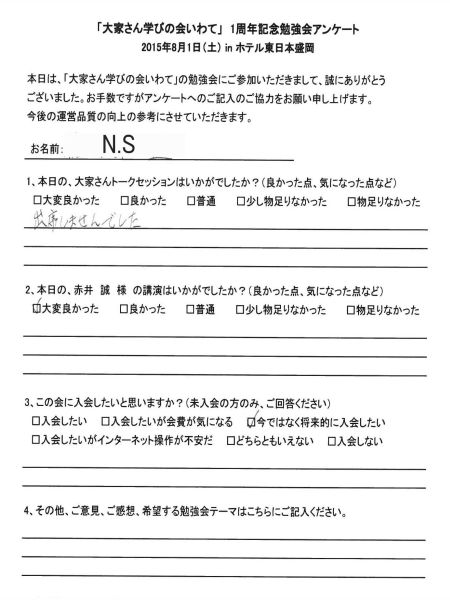 「大家さん学びの会いわて」 1周年記念勉強会アンケート
2015年8月1日(土) in ホテル東日本盛岡
本日は、「大家さん学びの会いわて」の勉強会にご参加いただきまして、誠にありがとう
ございました。お手数ですがアンケートへのご記入のご協力をお願い申し上げます。
今後の運営品質の向上の参考にさせていただきます。
お名前: N.S
1、本日の、大家さんトークセッションはいかがでしたか?(良かった点、気になった点など)
□大変良かった □良かった □普通 □少し物足りなかった □物足りなかった
出席しませんでした
2、本日の、赤井 誠 様 の講演はいかがでしたか?(良かった点、気になった点など)
☑大変良かった □良かった □普通 □少し物足りなかった □物足りなかった
3、この会に入会したいと思いますか?(未入会の方のみ、ご回答ください)
□入会したい □入会したいが会費が気になる ☑今ではなく将来的に入会したい
□入会したいがインターネット操作が不安だ □どちらともいえない □入会しない
4、その他、ご意見、ご感想、希望する勉強会テーマはこちらにご記入ください。